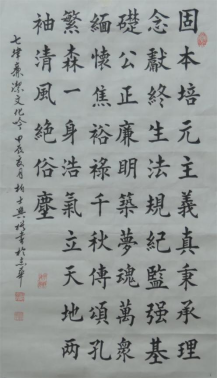 固本培元主義真秉承理
念獻終生法規紀監强基
礎公正廉明築夢魂萬衆
緬懷焦裕祿千秋傳頌孔
繁森一身浩氣立天地兩
袖清風絕俗塵
七律廉潔文化吟 甲辰亥月